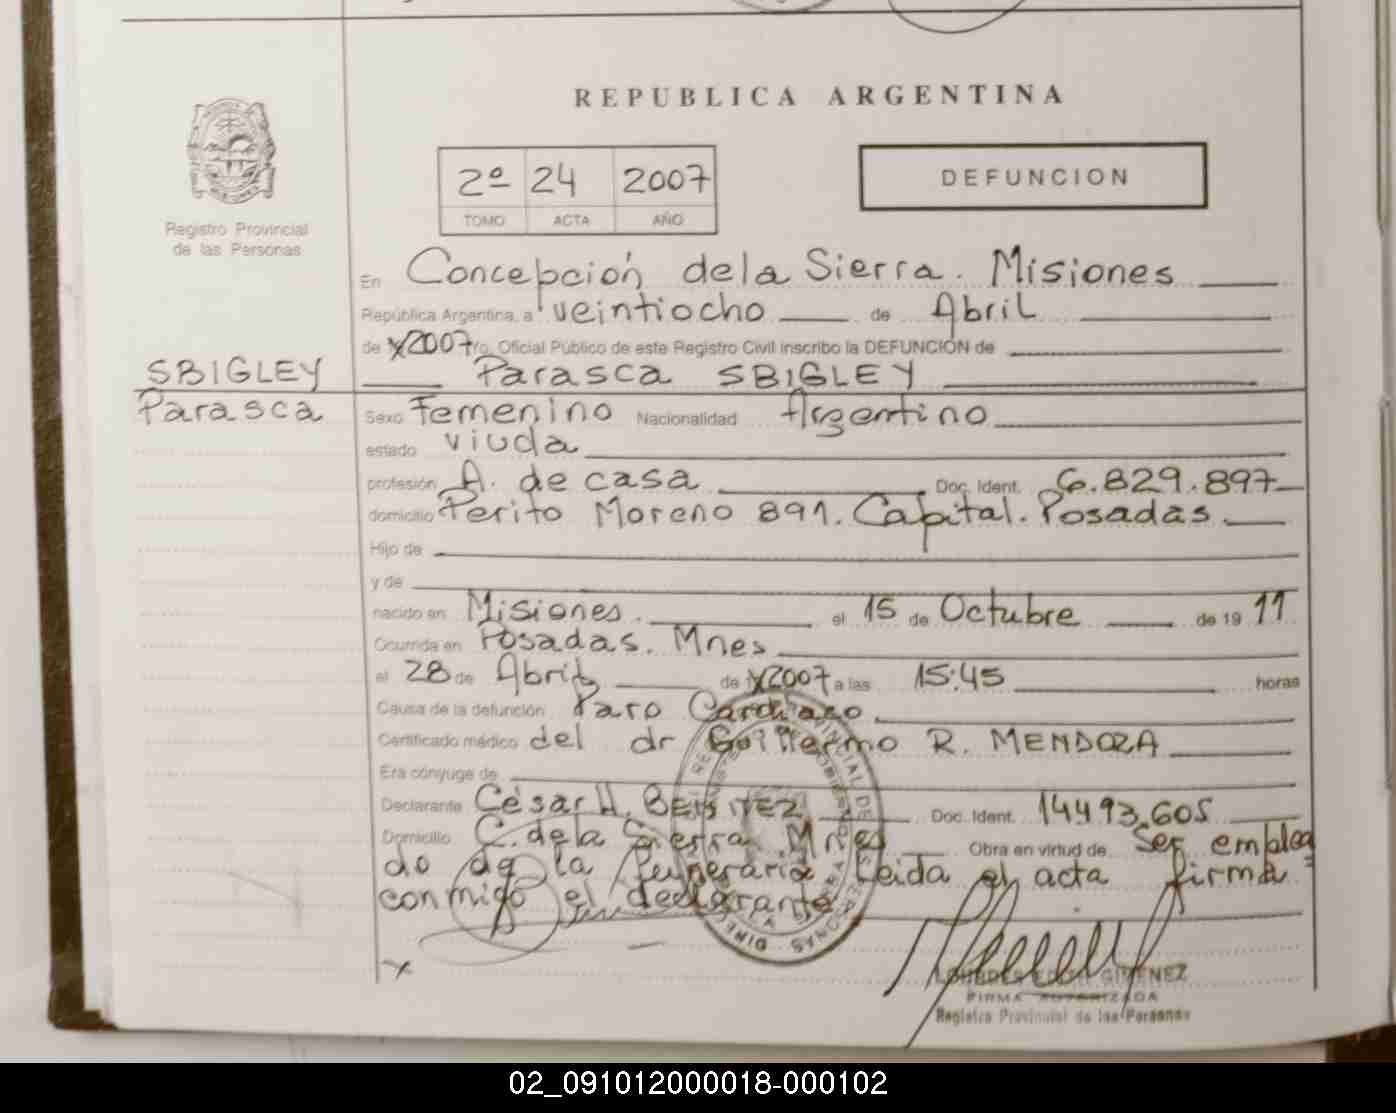 REPUBLICA ARGENTINA
2º 24 2007
TOMO ACTA AÑO
DEFUNCION
Registro Provincial
de las Personas
En Concepción de la Sierra. Misiones
República Argentina, a veintiocho de Abril
de 2007 yo, Oficial Público de este Registro Civil inscribo la DEFUNCION de
SBIGLEY
Parasca
Parasca SBIGLEY
Sexo Femenino Nacionalidad Argentino
estado viuda
profesión A. de casa Doc. Ident. 6.829.897
domicilio Perito Moreno 891. Capital. Posadas.
Hijo de
y de
nacido en Misiones. el 15 de Octubre de 19 11
Ocurrida en Posadas. Mnes
el 28 de Abril de 2007 a las 15:45 horas
Causa de la defunción Paro Cardiaco
Certificado médico del dr Guillermo R. MENDOZA
Era cónyuge de
Declarante César H. BENITEZ Doc. Ident. 14493.605
Domicilio C. de la Sierra Mnes Obra en virtud de Ser emplea
do de la Funeraria Leida el acta firma
conmigo el declarante
GIMENEZ
FIRMA AUTORIZADA
Registro Provincial de las Personas
02_091012000018-000102